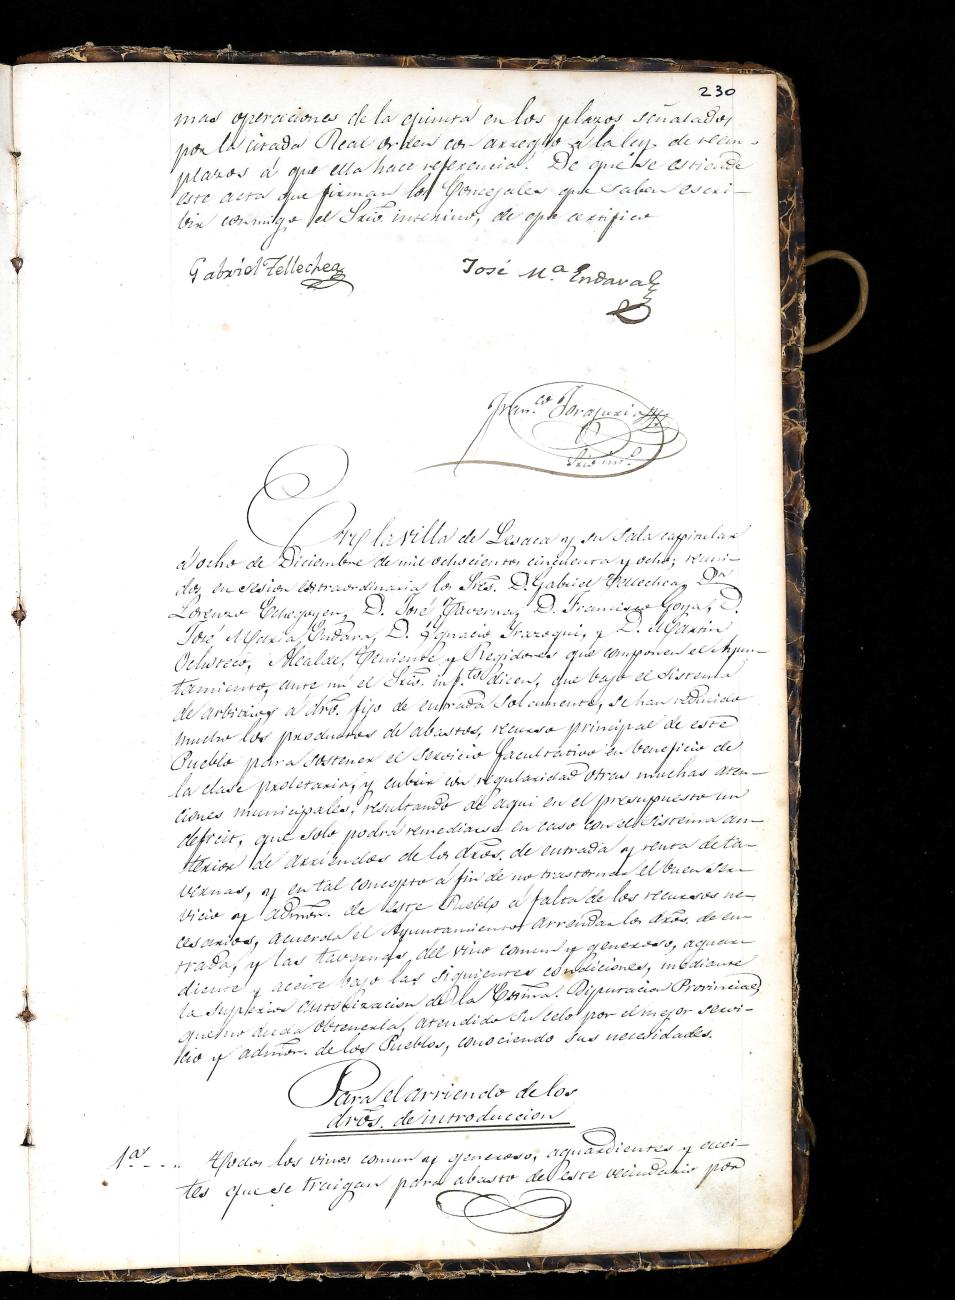 230
mas operaciones de la quinta en los plazos señalados
por la citada Real orden con arreglo á la ley de reem-
plazos á que ella hace referencia. De que se estiende
este acta que firman los Concejales que saben escri-
bir conmigo el Srio. interino, de que certifico
Gabriel Tellechea José Ma Endara
Fran.co Jorajuria
Srio int.o
En la villa de Lesaca y su sala capitular
á ocho de Diciembre de mil ochocientos cincuenta y ocho; reuni-
dos en sesion extraordinaria los Sres. D. Gabriel Tellechea, Dn
Lorenzo Echegoyen, D. José Taverna, D. Francisco Goya, D.
José Maria Endara, D. Ignacio Irazoqui, y D. Martin
Ochoteco, Alcalde, Teniente y Regidores que componen el Ayun-
tamiento, ante mi el Srio. inf.to dicen, que bajo el sistema
de arbitrios á dro. fijo de entrada solamente, se han reducido
mucho los productos de abastos, recurso principal de este
Pueblo para sostener el servicio facultativo en beneficio de
la clase proletaria, y cubrir con regularidad otras muchas aten-
ciones municipales, resultando de aqui en el presupuesto un
deficit, que solo podrá remediarse en caso con el sistema an-
terior de arriendos de los dros. de entrada y renta de ta-
vernas, y en tal concepto á fin de no trastornar el buen ser-
vicio y admor. de este Pueblo á falta de los recursos ne-
cesarios, acuerda el Ayuntamiento arrendar los dros. de en-
trada, y las tavernas del vino comun y generoso, aguar-
diente y aceite bajo las siguientes condiciones, mediante
la superior autorizacion de la Escma. Diputacion Provincial,
que no duda obtenerla, atendido su celo por el mejor servi-
cio y admor. de los Pueblos, conociendo sus necesidades.
Para el arriendo de los
dros. de introduccion
1.a Todos los vinos comun y generoso, aguardientes y acei-
tes que se traigan para abasto de este vecindario por